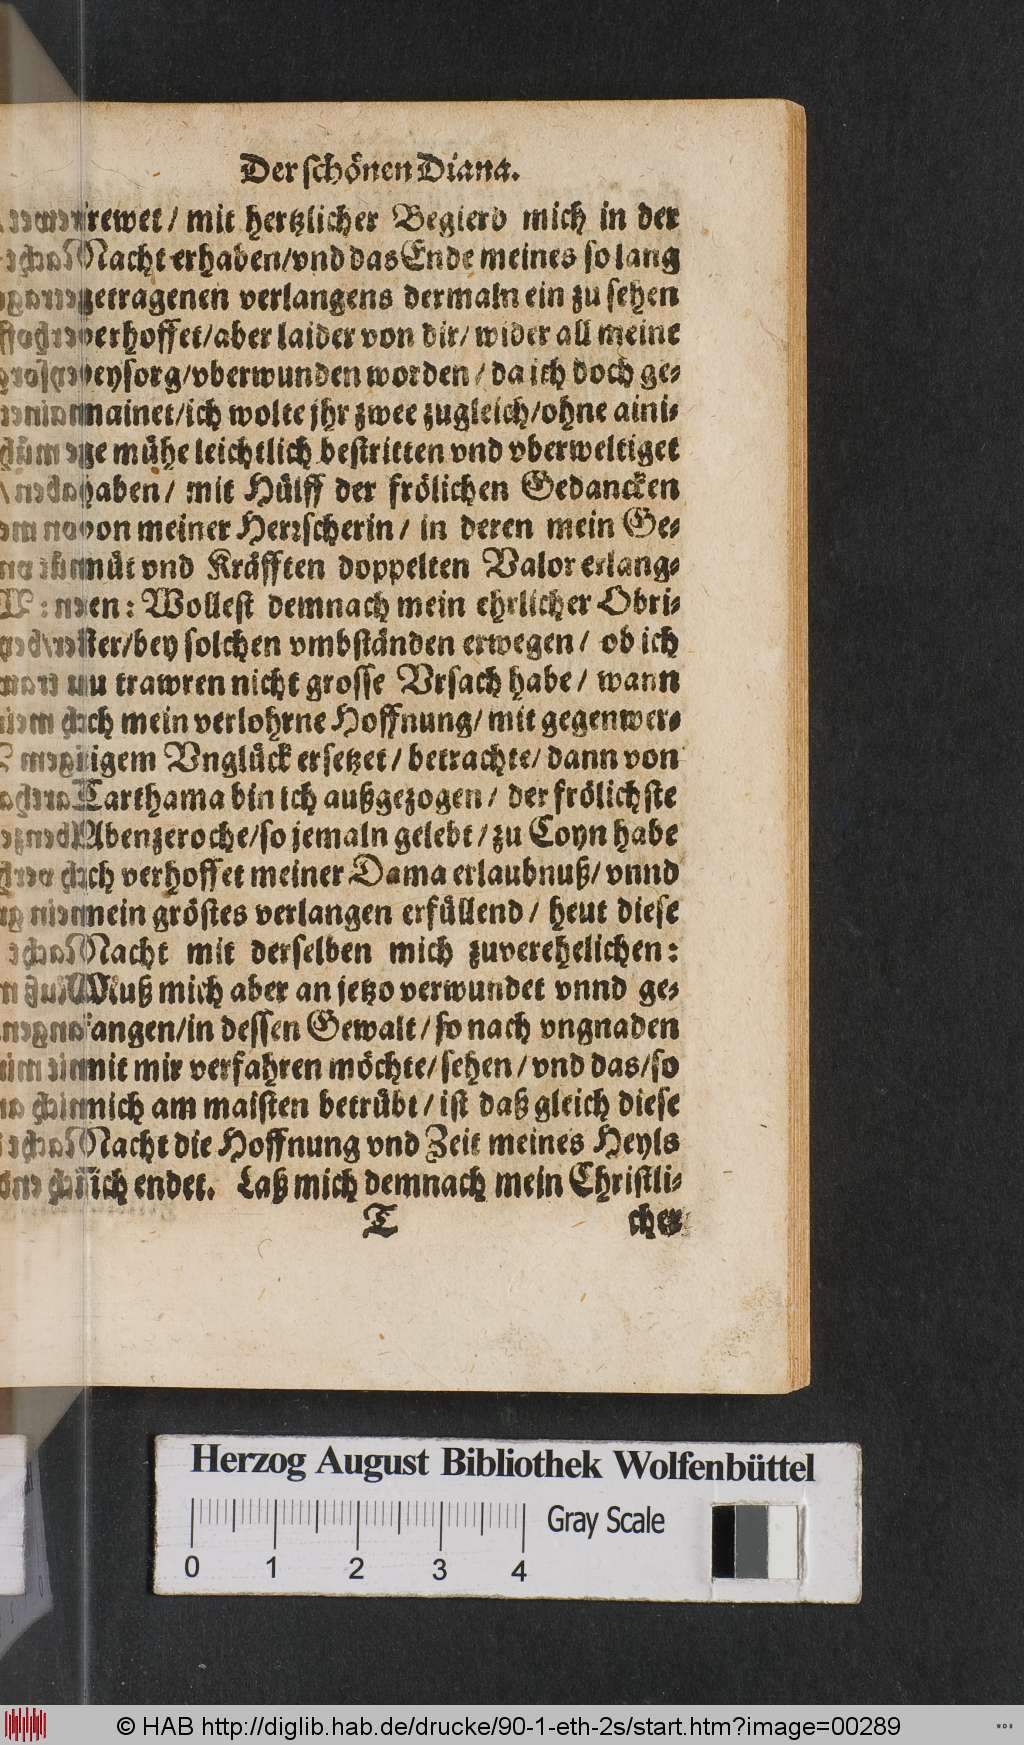 Der schönen Diana.
rewet / mit hertzlicher Begierd mich in der
Nacht erhaben/vnd das Ende meines so lang
getragenen verlangens dermaln ein zu sehen
verhoffet/aber laider von dir/ wider all meine
beysorg/vberwunden worden / da ich doch ge-
mainet/ich wolte jhr zwee zugleich/ohne aini-
ge mühe leichtlich bestritten vnd vberweltiget
haben / mit Hülff der frölichen Gedancken
von meiner Herrscherin / in deren mein Ge-
müt vnd Kräfften doppelten Valor erlang-
ten : Wollest demnach mein ehrlicher Obri-
ster/bey solchen vmbständen erwegen / ob ich
zu trawren nicht grosse Vrsach habe / wann
ich mein verlohrne Hoffnung/ mit gegenwer-
tigem Vnglück ersetzet / betrachte/ dann von
Carthama bin ich außgezogen / der frölichste
Abenzeroche/so jemaln gelebt / zu Coyn habe
ich verhoffet meiner Dama erlaubnuß/ vnnd
mein gröstes verlangen erfüllend / heut diese
Nacht mit derselben mich zuverehelichen:
Muß mich aber an jetzo verwundet vnnd ge-
fangen/in dessen Gewalt / so nach vngnaden
mit mir verfahren möchte/ sehen / vnd das/so
mich am maisten betrübt / ist daß gleich diese
Nacht die Hoffnung vnd Zeit meines Heyls
sich endet. Laß mich demnach mein Christli-
T cher
Herzog August Bibliothek Wolfenbüttel
Gray Scale
0 1 2 3 4
© HAB http://diglib.hab.de/drucke/90-1-eth-2s/start.htm?image=00289